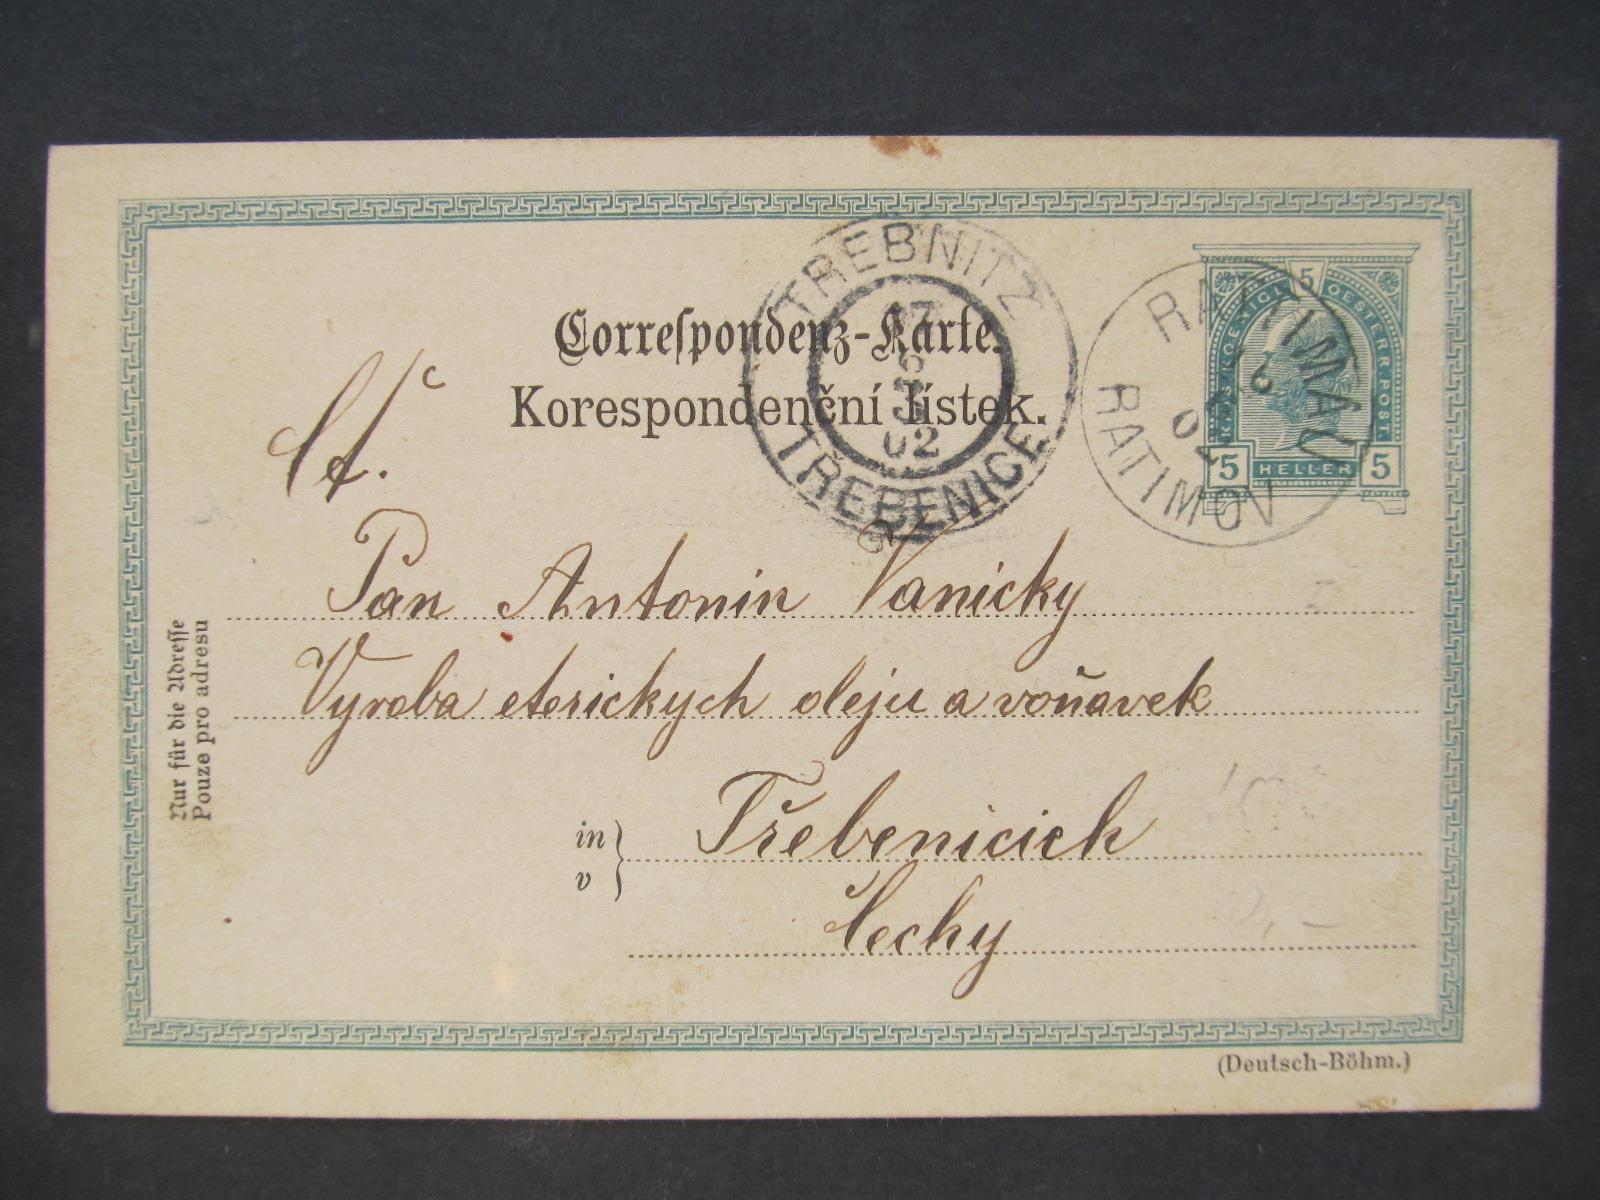 Correspondenz-Karte.
Korespondenční lístek.
TREBNITZ
17
02
TŘEBENICE
RATTIMAU
02
RATIMOV
5
KAIS. KOENIGL. OESTERR. POST.
5 HELLER 5
Ct.
Pan Antonin Vanicky
Vyroba eterickych oleju a voňavek
in
v
Třebenicich
Čechy
Nur für die Adresse
Pouze pro adresu
(Deutsch-Böhm.)